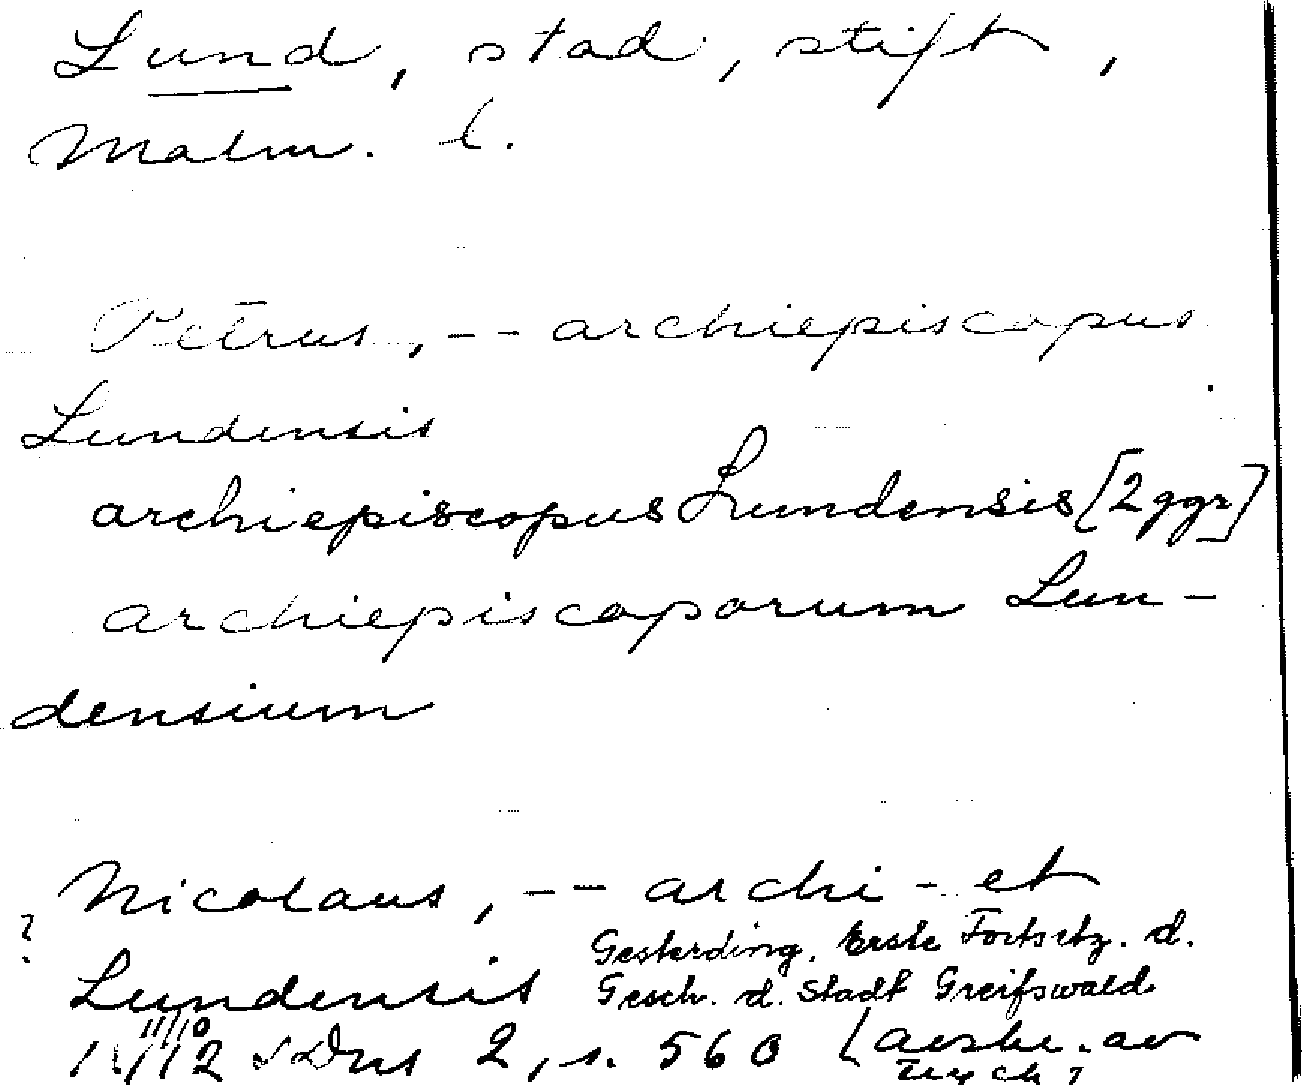 Lund, stad, stift,
Malm. l.
Petrus, -- archiepiscopus
Lundensis
archiepiscopus Lundensis [2 ggr]
archiepiscoporum Lun-
densium
Nicolaus, -- archi- et
?
Lundensis Gesterding, Erste Fortsetz. d.
Gesch. d. Stadt Greifswald
2, s. 560 av